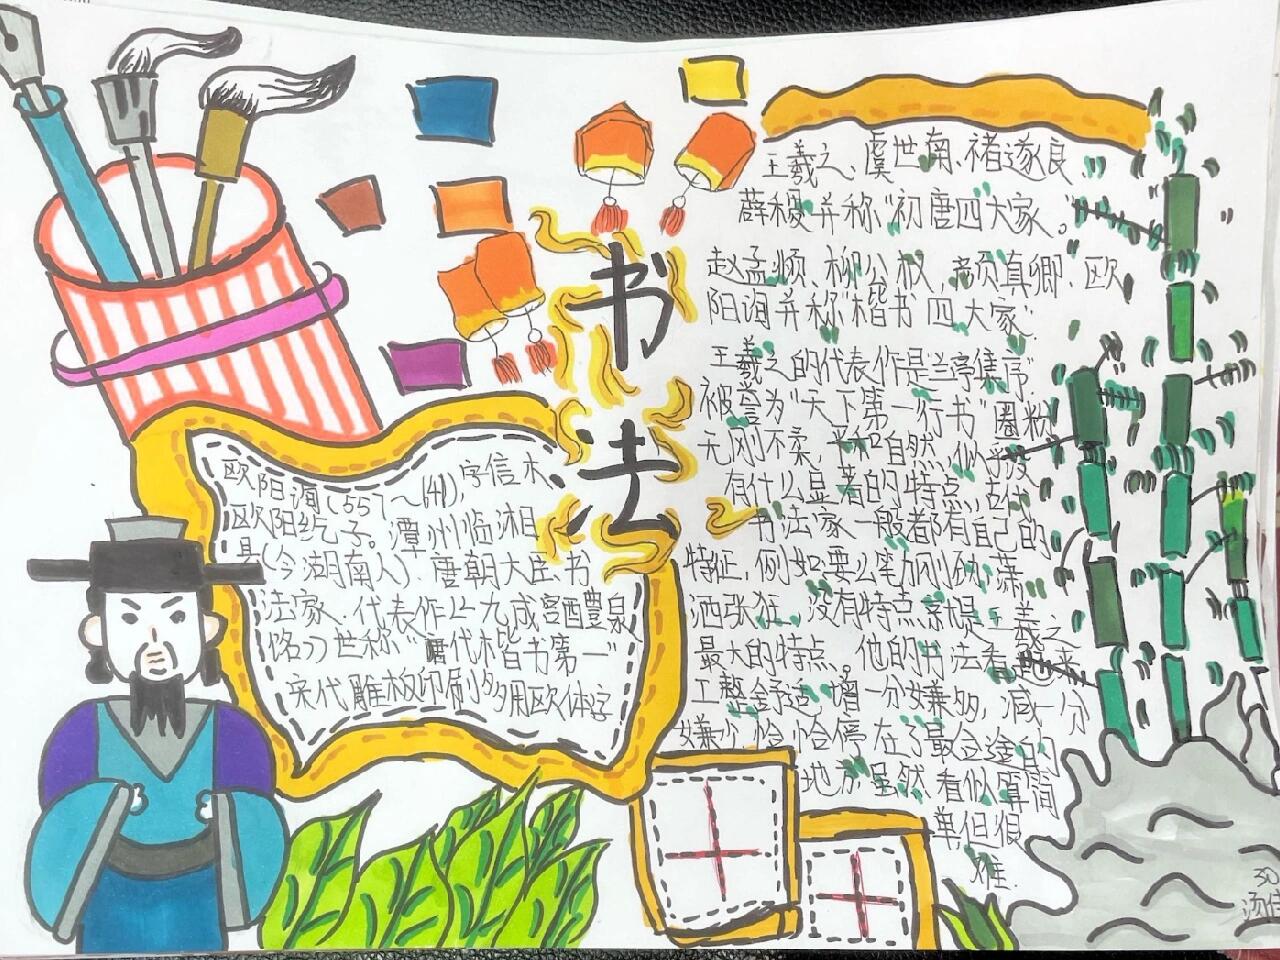 书法
欧阳询(557~641),字信本,
欧阳纥子。潭州临湘
县(今湖南人)、唐朝大臣书
法家、代表作《九成宫醴泉
铭》世称"唐代楷书第一"
宋代雕板印刷多用欧体字
王羲之、虞世南、褚遂良
薛稷并称"初唐四大家。"
赵孟頫、柳公权,颜真卿、欧
阳询并称"楷书四大家"
王羲之的代表作是兰亭集序
被誉为"天下第一行书"
无刚不柔,平和自然,似乎没
有什么显著的特点,古代
书法家一般都有自己的
特征,例如要么笔力刚劲,潇
洒张狂。没有特点就是王羲之
最大的特点。他的书法看
工整舒适,增一分嫌多,减一分
嫌少恰恰停在了最合适的
地方虽然看似简
单但很
难.
30
汤佳